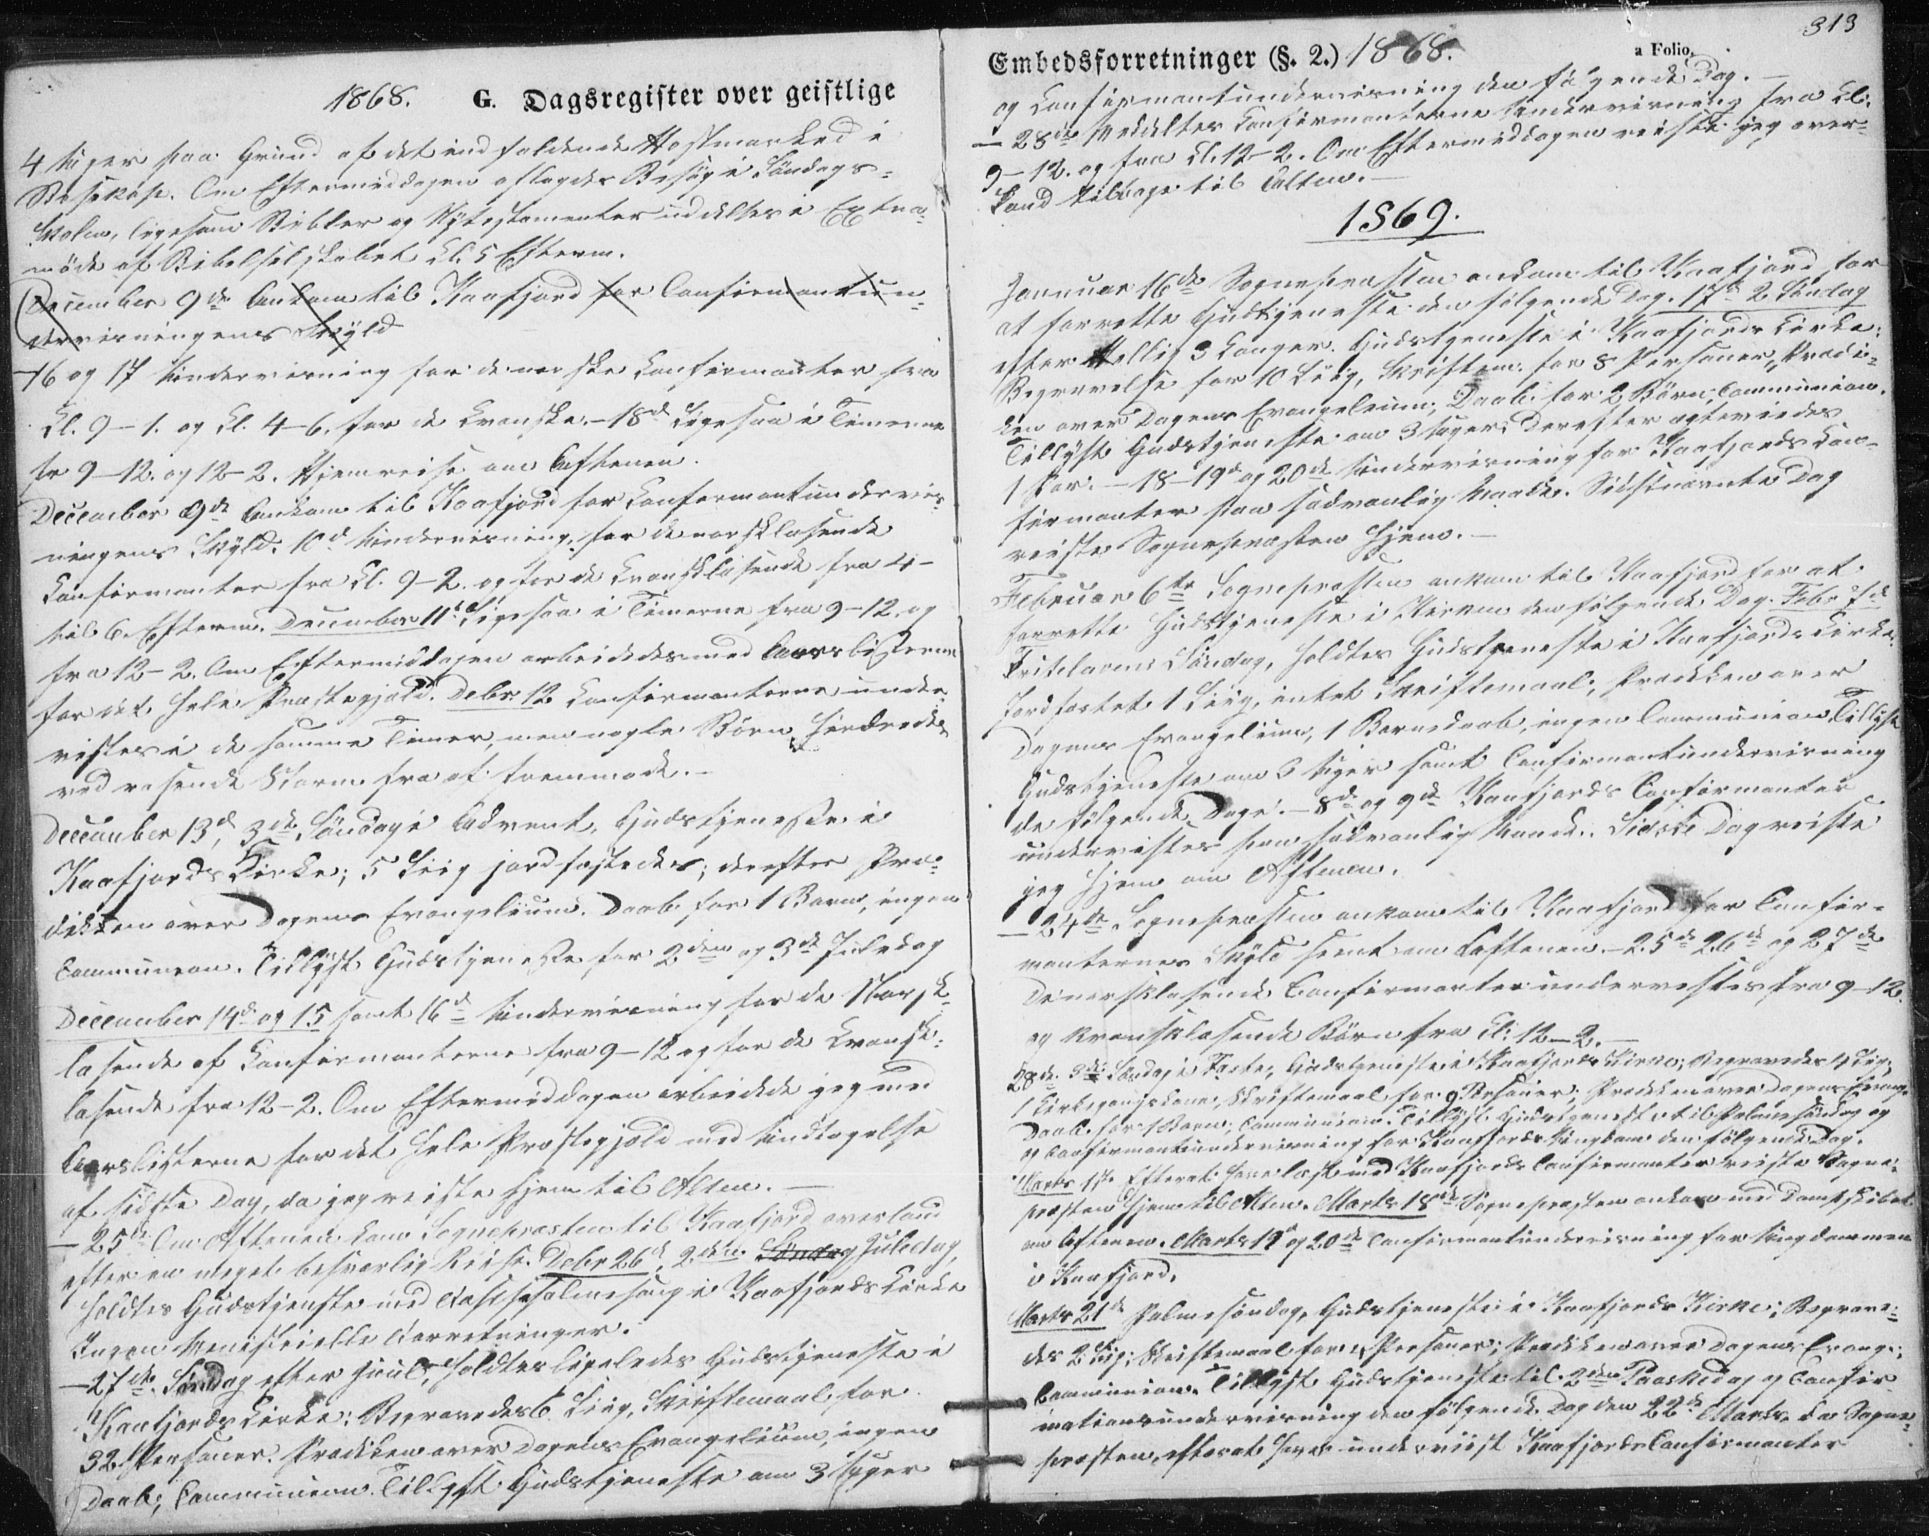 1868. G. Dagsregister over geistlige
4 Uger paa Grund af det indfaldende Høstmarked i
Bosekop. Om Eftermiddagen aflagdes Besøg i Søndags-
skolen, ligesom Bibler og Nytestamenter uddeltes i Extra-
møde af Bibelselskabet Kl. 5 Efterm.
December 9de Ankom til Kaafjord for Confirmantun-
dervisningens Skyld
- 16 og 17 Undervisning for de norske Confirmanter fra
Kl. 9-1. og Kl. 4-6. for de kvenske. - 18de Ligesaa i Timerne
fr 9-12. og 12-2. Hjemreise om Aftenen.
December 9de Ankom til Kaafjord for Confirmantundervis-
ningens Skyld. 10de Undervisning for de norsklæsende
Confirmanter fra Kl. 9-2. og for de kvensklæsende fra 4-
til 6. Efterm. December 11te Ligesaa i Timerne fra 9-12. og
fra 12-2. Om Eftermiddagen arbeidedes med Aarslisterne
for det hele Præstegjeld. Debr. 12 Confirmanterne under-
vistes i de samme Timer, men nogle Børn hindredes
ved rasende Storm fra at fremmøde. -
December 13de, 3die Søndag i Advent, Gudstjeneste i
Kaafjords Kirke; 5 Liig jordfæstedes; derefter Præ-
dikken over Dagens Evangelium. Daab for 1 Barn, ingen
Communion. Tillyst Gudstjeneste for 2den og 3die Juledag
December 14de og 15 samt 16de Undervisning for de Norsk-
læsende af Confirmanterne fra 9-12 og for de kvensk-
læsende fra 12-2. Om Eftermiddagen arbeidede jeg med
Aarslisterne for det hele Præstegjeld med Undtagelse
af sidste Dag, da jeg reiste hjem til Alten. -
- 25de Om Aftenen kom Sognepræsten til Kaafjord overland
efter en meget besværlig Reise. Debr 26de, 2den Søndag Juledag,
holdtes Gudstjeneste med Psalmesang i Kaafjords Kirke
Ingen ministerielle Forretninger.
- 27de. Søndag efter Juul, holdtes ligeledes Gudstjeneste i
Kaafjords Kirke; Begravedes 6 Liig, Skriftemaal for
32 Personer. Prædikken over Dagens Evangelium, ingen
Daab; Communion. Tillyst Gudstjeneste om 3 Uger
313
Embedsforretninger (§. 2.) 1868. a Folio.
og Confirmantundervisning den følgende Dag. -
- 28de Meddeltes Confirmanterne Undervisning fra Kl.
9-12. og fra Kl. 12-2. Om Eftermiddagen reiste jeg over-
land tilbage til Alten. -
1869.
Januar 16de Sognepræsten ankom til Kaafjord for
at forrette Gudstjeneste den følgende Dag. 17de 2 Søndag
efter Hellig 3 Konger. Gudstjeneste i Kaafjords Kirke:
Begravelse for 10 Liig, Skriftem. for 8 Personer, Prædi-
ken over Dagens Evangelium; Daab for 2 Børn, Communion.
Tillyst Gudstjeneste om 3 Uger; Derefter ægteviedes
1 Par. - 18-19de og 20de Undervisning for Kaafjords Con-
firmanter paa sædvanlig Maade. Sidstnævnte Dag
reiste Sognepræsten hjem. -
Februar 6te Sognepræsten ankom til Kaafjord for at
forrette Gudstjeneste i Kirken den følgende Dag. Febr 7de
Fastelavens Søndag, holdtes Gudstjeneste i Kaafjords Kirke
Jordfæstet 1 Liig, intet Skriftemaal; Prædikken over
Dagens Evangelium, 1 Barnedaab, ingen Communion, Tillyst
Gudstjeneste om 3 Uger samt Confirmantundervisning
de følgende Dage. - 8de og 9de Kaafjords Confirmanter
undervistes paa sædvanlig Maade. Sidste Dag reiste
jeg hjem om Aftenen.
- 24de Sognepræsten ankom til Kaafjord for Confir-
manternes Skyld seent om Aftenen. - 25de 26de og 27de
De norsklæsende Confirmanter undervistes fra 9-12.
og kvensklæsende Børn fra Kl. 12-2. -
28de. 3die Søndag i Faste, Gudstjeneste i Kaafjords Kirke; Begravedes 4 Liig,
1 Kirkegangskone, Skriftemaal for 9 Personer; Prædikken over Dagens Evang.
Daab for 1 Barn; Communion. Tillyst Gudstjeneste til Palmesøndag og
og Confirmantundervisning for Kaafjords Ungdom den følgende Dag.
Marts 1ste Efterat have læst med Kaafjords Confirmanter reiste Sogne-
præsten hjem til Alten. Marts 18de Sognepræsten ankom med Dampskibet
om Aftenen. Marts 19de og 20de Confirmantundervisning for Ungdommen
i Kaafjord.
Marts 21de Palmesøndag, Gudstjeneste i Kaafjords Kirke; Begrave-
des 2 Liig; Skriftemaal for Personer; Prædikken over Dagens Evang.;
Communion. Tillyst Gudstjeneste til 2den Paaskedag og Confir-
mationsundervisning den følgende Dag den 22de Marts, da Sogne-
præsten, efterat have underviist Kaafjords Confirmanter